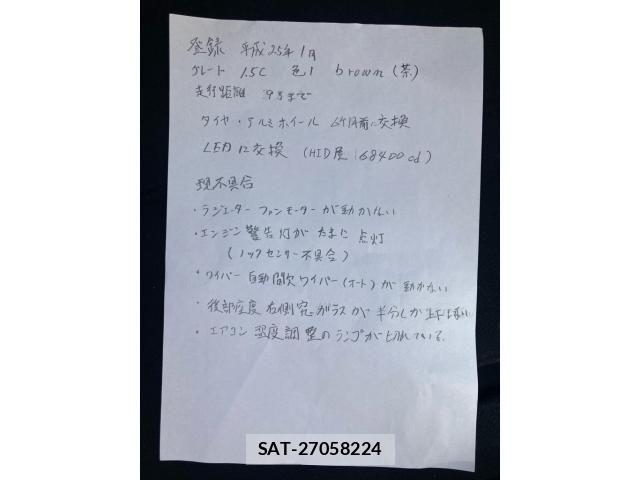 登録 平成25年1月
グレード 1.5C 色 brown (茶)
走行距離 まで
タイヤ・アルミホイール 6ヶ月前に交換
LEDに交換 (HID 68400cd)
現不具合
・ラジエーター ファンモーターが動かない
・エンジン警告灯がたまに点灯
(ノックセンサー不具合)
・ワイパー 自動間欠ワイパー(オート)が動かない
・後部座席 右側窓ガラスが半分しか
・エアコン 温度調整のランプが切れている.
SAT-27058224